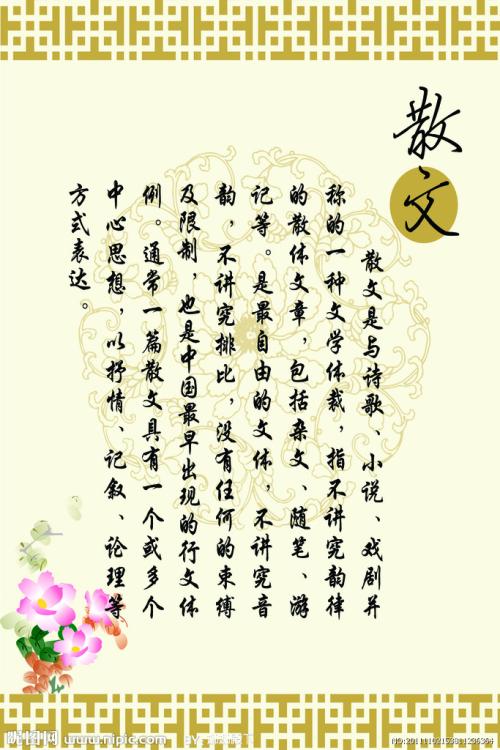 散文
散文是与诗歌、小说、戏剧并
称的一种文学体裁，指不讲究韵律
的散体文章，包括杂文、随笔、游
记等。是最自由的文体，不讲究音
韵，不讲究排比，没有任何的束缚
及限制，也是中国最早出现的行文体
例。通常一篇散文具有一个或多个
中心思想，以抒情、记叙、论理等
方式表达。
昵图网 www.nipic.com